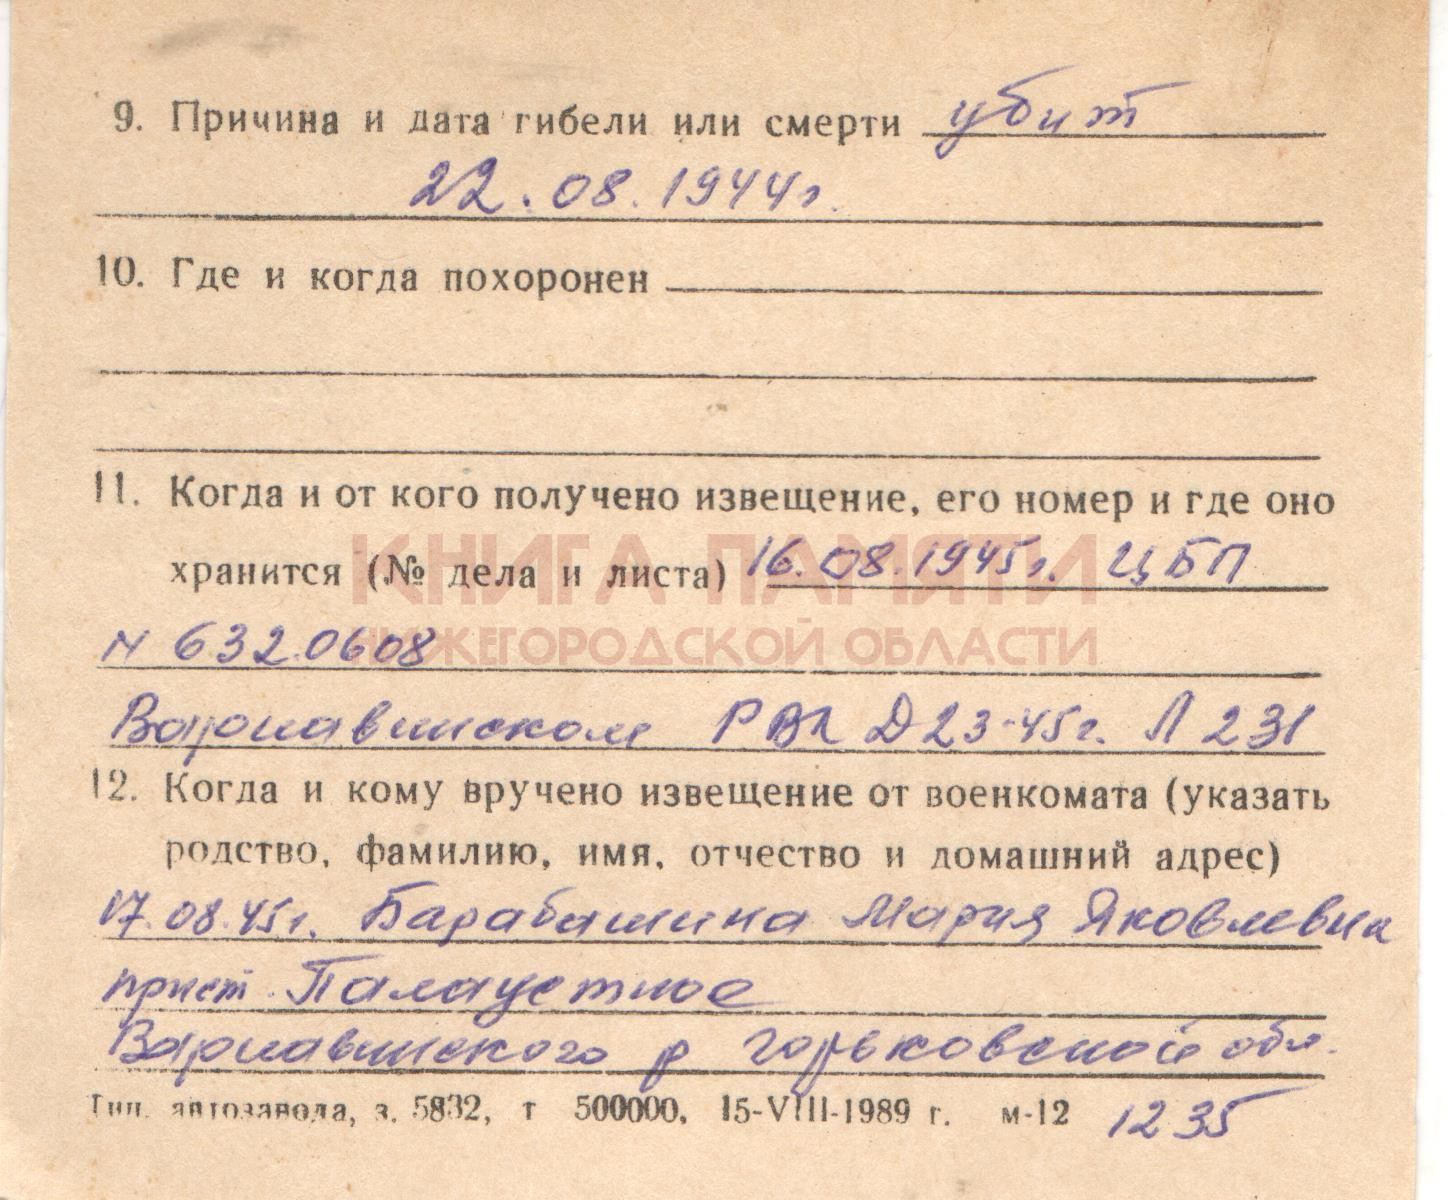 9. Причина и дата гибели или смерти убит
22.08.1944г.
10. Где и когда похоронен
11. Когда и от кого получено извещение, его номер и где оно
хранится (№ дела и листа) 16.08.1945г. ЦБП
КНИГА ПАМЯТИ
НИЖЕГОРОДСКОЙ ОБЛАСТИ
N 632.0608
Варнавинском РВК Д23-45г. Л 231
12. Когда и кому вручено извещение от военкомата (указать
родство, фамилию, имя, отчество и домашний адрес)
17.08.45г. Барабашина Мария Яковлевна
прист. Палаустное
Варнавинского р Горьковской обл.
Тип. автозавода, з. 5832, т 500000, 15-VIII-1989 г. м-12 1235